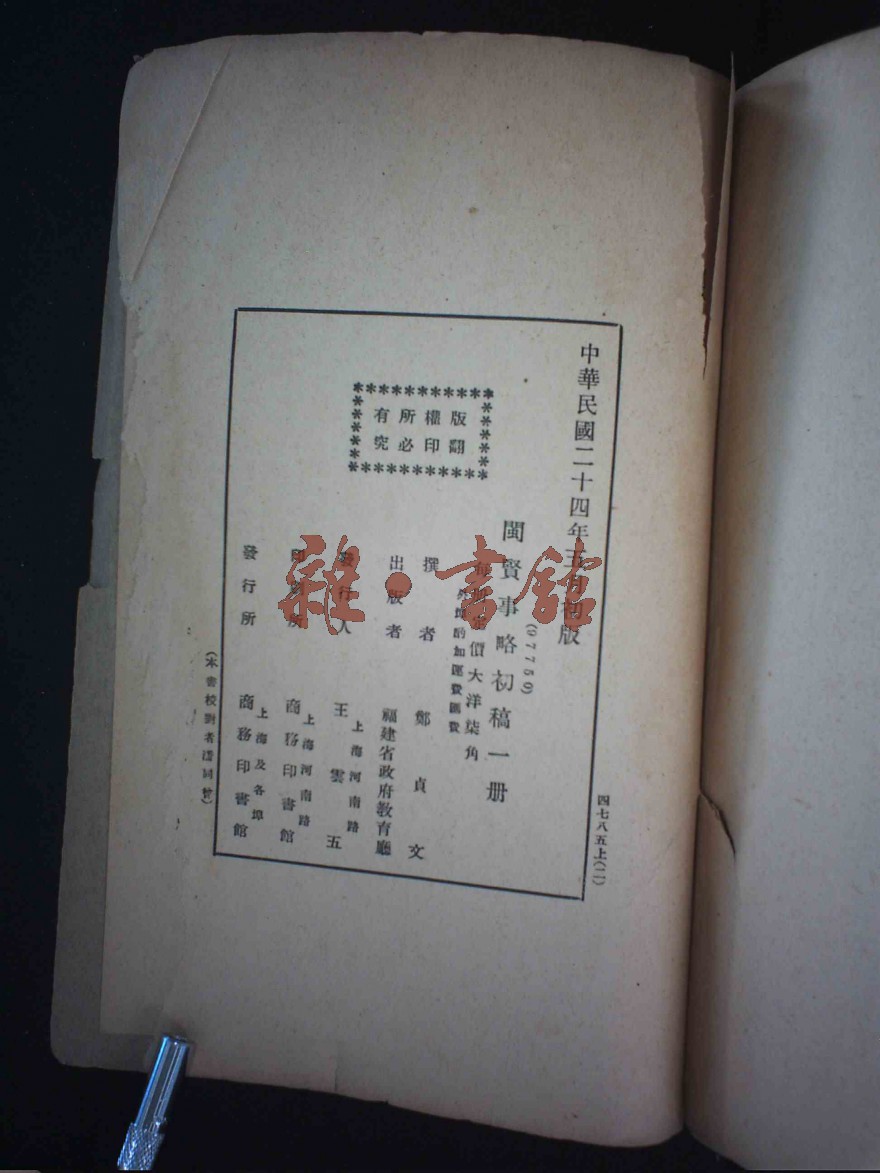 中華民國二十四年五月初版
(97759)
閩賢事略初稿一册
每册定價大洋柒角
外埠酌加運費匯費
撰者 鄭貞文
出版者 福建省政府教育廳
發行人 王雲五
上海河南路
印刷所 商務印書館
上海河南路
發行所 商務印書館
上海及各埠
版權所有
翻印必究
(本書校對者
四七八五上(二)
雜·書館